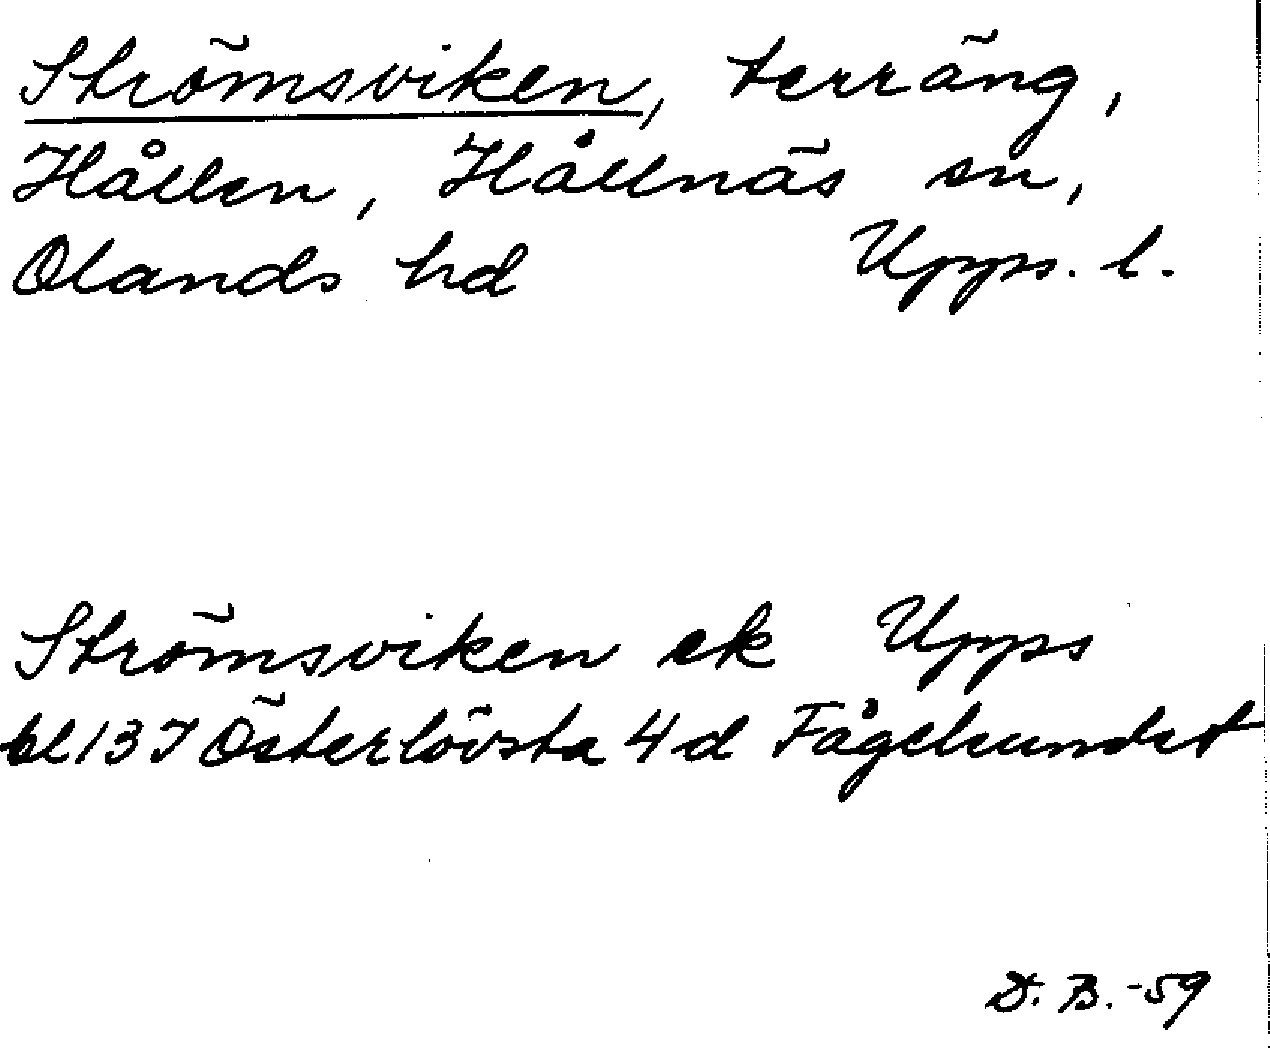 Strömsviken, terräng,
Hållen, Hållnäs sn,
Olands hd Upps. l.
Strömsviken ek Upps
bl 13 I Österlövsta 4 d Fågelsundet
D. B. -59